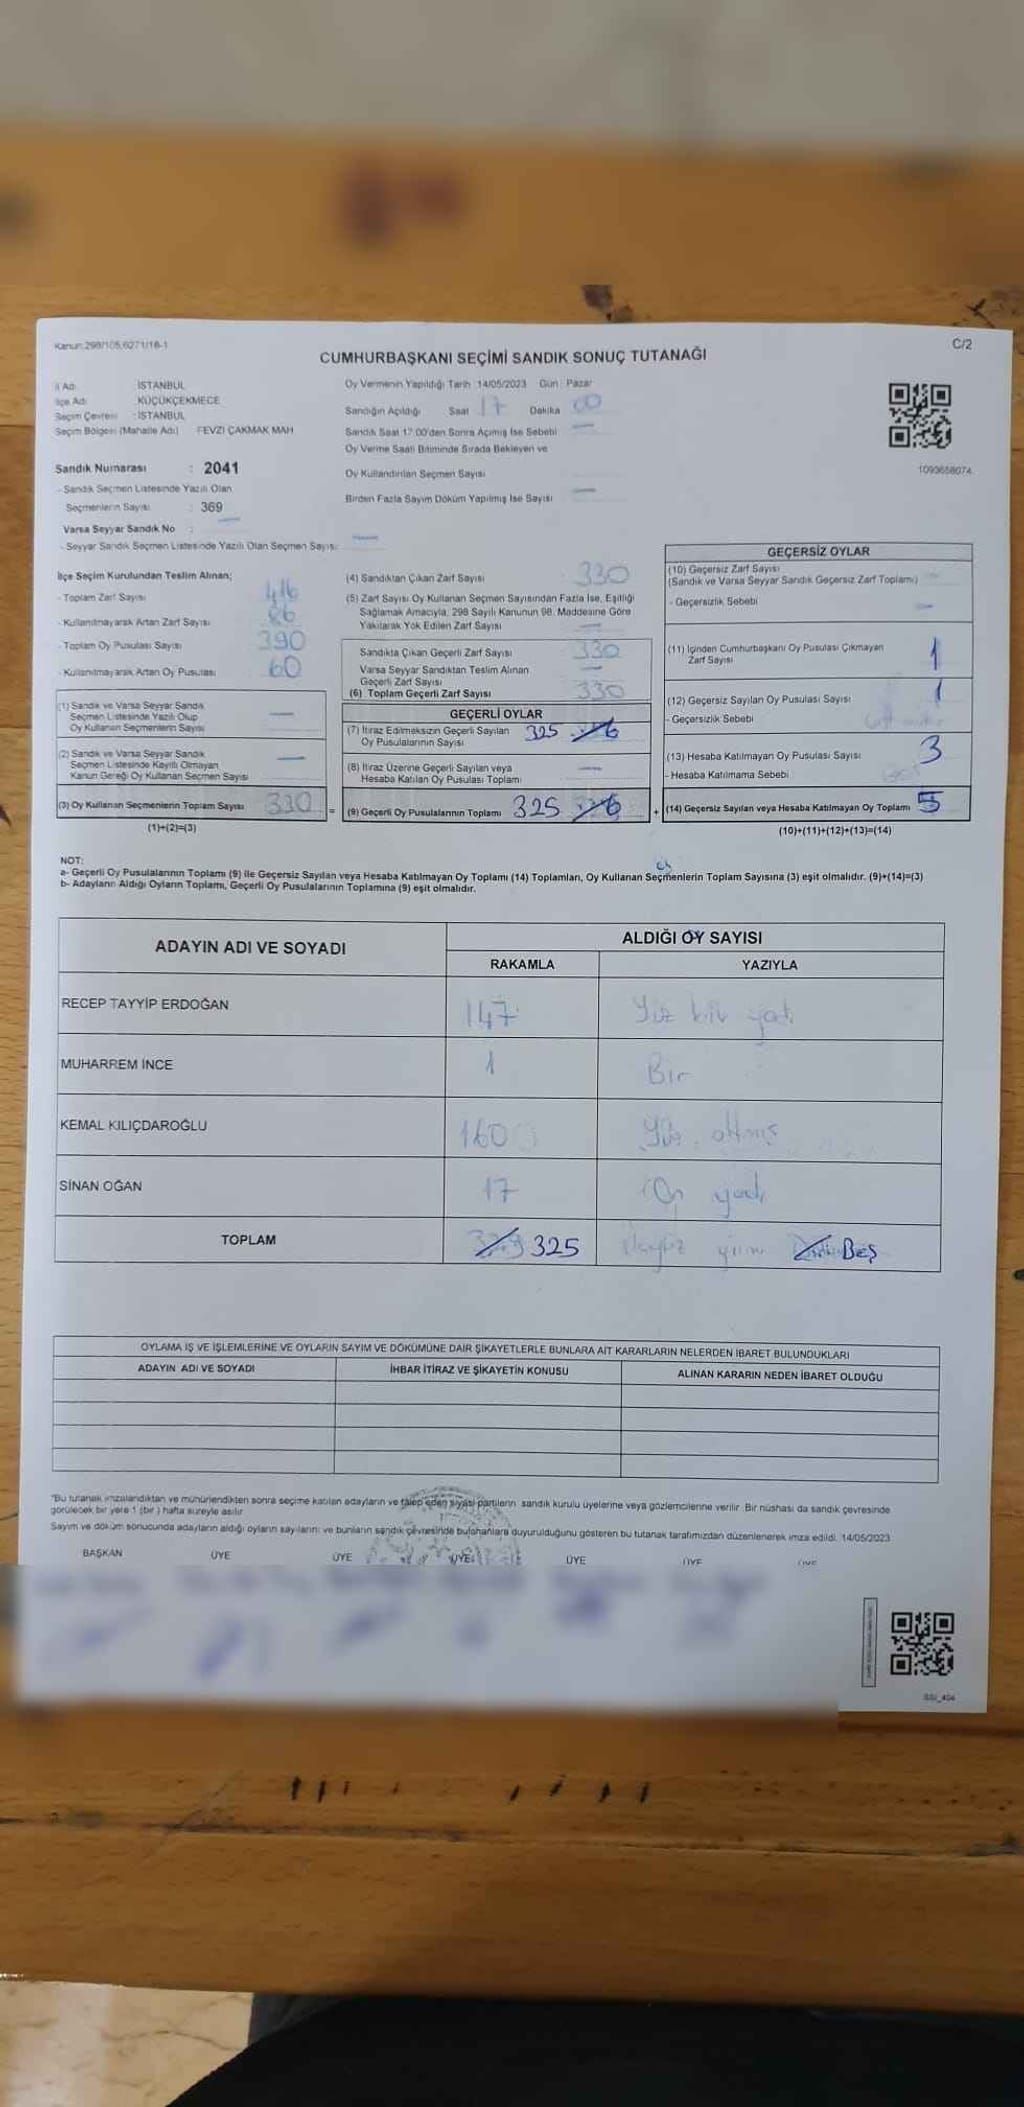 Kanun:298/105,6271/18-1
C/2
CUMHURBAŞKANI SEÇİMİ SANDIK SONUÇ TUTANAĞI
İl Adı : İSTANBUL
İlçe Adı : KÜÇÜKÇEKMECE
Seçim Çevresi : İSTANBUL
Seçim Bölgesi (Mahalle Adı) FEVZİ ÇAKMAK MAH
Sandık Numarası : 2041
- Sandık Seçmen Listesinde Yazılı Olan
Seçmenlerin Sayısı : 369
Varsa Seyyar Sandık No : —
- Seyyar Sandık Seçmen Listesinde Yazılı Olan Seçmen Sayısı: —
Oy Vermenin Yapıldığı Tarih 14/05/2023 Gün : Pazar
Sandığın Açıldığı Saat 17 Dakika 00
Sandık Saat 17:00'den Sonra Açılmış İse Sebebi —
Oy Verme Saati Bitiminde Sırada Bekleyen ve
Oy Kullandırılan Seçmen Sayısı
Birden Fazla Sayım Döküm Yapılmış İse Sayısı —
1093658074
İlçe Seçim Kurulundan Teslim Alınan;
- Toplam Zarf Sayısı 416
- Kullanılmayarak Artan Zarf Sayısı 86
- Toplam Oy Pusulası Sayısı 390
- Kullanılmayarak Artan Oy Pusulası 60
(1) Sandık ve Varsa Seyyar Sandık
Seçmen Listesinde Yazılı Olup
Oy Kullanan Seçmenlerin Sayısı —
(2) Sandık ve Varsa Seyyar Sandık
Seçmen Listesinde Kayıtlı Olmayan
Kanun Gereği Oy Kullanan Seçmen Sayısı —
(3) Oy Kullanan Seçmenlerin Toplam Sayısı 330 =
(1)+(2)=(3)
(4) Sandıktan Çıkan Zarf Sayısı 330
(5) Zarf Sayısı Oy Kullanan Seçmen Sayısından Fazla İse, Eşitliği
Sağlamak Amacıyla, 298 Sayılı Kanunun 98. Maddesine Göre
Yakılarak Yok Edilen Zarf Sayısı —
Sandıkta Çıkan Geçerli Zarf Sayısı 330
Varsa Seyyar Sandıktan Teslim Alınan
Geçerli Zarf Sayısı —
(6) Toplam Geçerli Zarf Sayısı 330
GEÇERLİ OYLAR
(7) İtiraz Edilmeksizin Geçerli Sayılan 325
Oy Pusulalarının Sayısı
(8) İtiraz Üzerine Geçerli Sayılan veya
Hesaba Katılan Oy Pusulası Toplamı —
(9) Geçerli Oy Pusulalarının Toplamı 325 +
GEÇERSİZ OYLAR
(10) Geçersiz Zarf Sayısı
(Sandık ve Varsa Seyyar Sandık Geçersiz Zarf Toplamı) —
- Geçersizlik Sebebi —
(11) İçinden Cumhurbaşkanı Oy Pusulası Çıkmayan
Zarf Sayısı 1
(12) Geçersiz Sayılan Oy Pusulası Sayısı 1
- Geçersizlik Sebebi
(13) Hesaba Katılmayan Oy Pusulası Sayısı 3
- Hesaba Katılmama Sebebi
(14) Geçersiz Sayılan veya Hesaba Katılmayan Oy Toplamı 5
(10)+(11)+(12)+(13)=(14)
NOT:
a- Geçerli Oy Pusulalarının Toplamı (9) ile Geçersiz Sayılan veya Hesaba Katılmayan Oy Toplamı (14) Toplamları, Oy Kullanan Seçmenlerin Toplam Sayısına (3) eşit olmalıdır. (9)+(14)=(3)
b- Adayların Aldığı Oyların Toplamı, Geçerli Oy Pusulalarının Toplamına (9) eşit olmalıdır.
ADAYIN ADI VE SOYADI
ALDIĞI OY SAYISI
RAKAMLA YAZIYLA
RECEP TAYYİP ERDOĞAN 147 Yüz kırk yedi
MUHARREM İNCE 1 Bir
KEMAL KILIÇDAROĞLU 160 Yüz altmış
SİNAN OĞAN 17 On yedi
TOPLAM 325 Üçyüz yirmi BEŞ
OYLAMA İŞ VE İŞLEMLERİNE VE OYLARIN SAYIM VE DÖKÜMÜNE DAİR ŞİKAYETLERLE BUNLARA AİT KARARLARIN NELERDEN İBARET BULUNDUKLARI
ADAYIN ADI VE SOYADI İHBAR İTİRAZ VE ŞİKAYETİN KONUSU ALINAN KARARIN NEDEN İBARET OLDUĞU
"Bu tutanak imzalandıktan ve mühürlendikten sonra seçime katılan adayların ve talep eden siyasi partilerin sandık kurulu üyelerine veya gözlemcilerine verilir. Bir nüshası da sandık çevresinde
görülecek bir yere 1 (bir) hafta süreyle asılır.
Sayım ve döküm sonucunda adayların aldığı oyların sayılarını ve bunların sandık çevresinde bulunanlara duyurulduğunu gösteren bu tutanak tarafımızdan düzenlenerek imza edildi. 14/05/2023
BAŞKAN ÜYE ÜYE ÜYE ÜYE ÜYE ÜYE